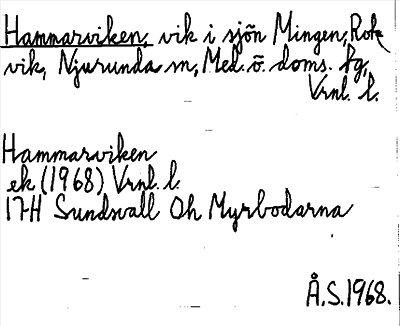 Hammarviken, vik i sjön Mingen, Rok
vik, Njurunda sn, Med. ö. doms. fg,
Vrnl. l.
Hammarviken
ek (1968) Vrnl. l.
17H Sundsvall Oh Myrbodarna
Å.S.1968.